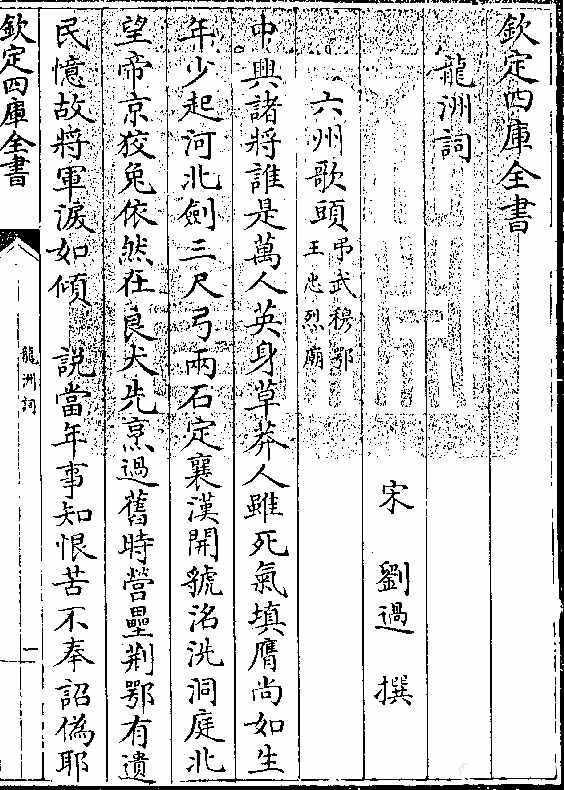 欽定四庫全書
龍洲詞
宋 劉過 撰
六州歌頭 弔武穆鄂
王忠烈廟
中興諸將誰是萬人英身草莽人雖死氣填膺尚如生
年少起河北劍三尺弓兩石定襄漢開虢洛洗洞庭北
望帝京狡兔依然在良犬先烹過舊時營壘荆鄂有遺
民憶故將軍淚如傾 說當年事知恨苦不奉詔偽耶
欽定四庫全書
龍洲詞
一